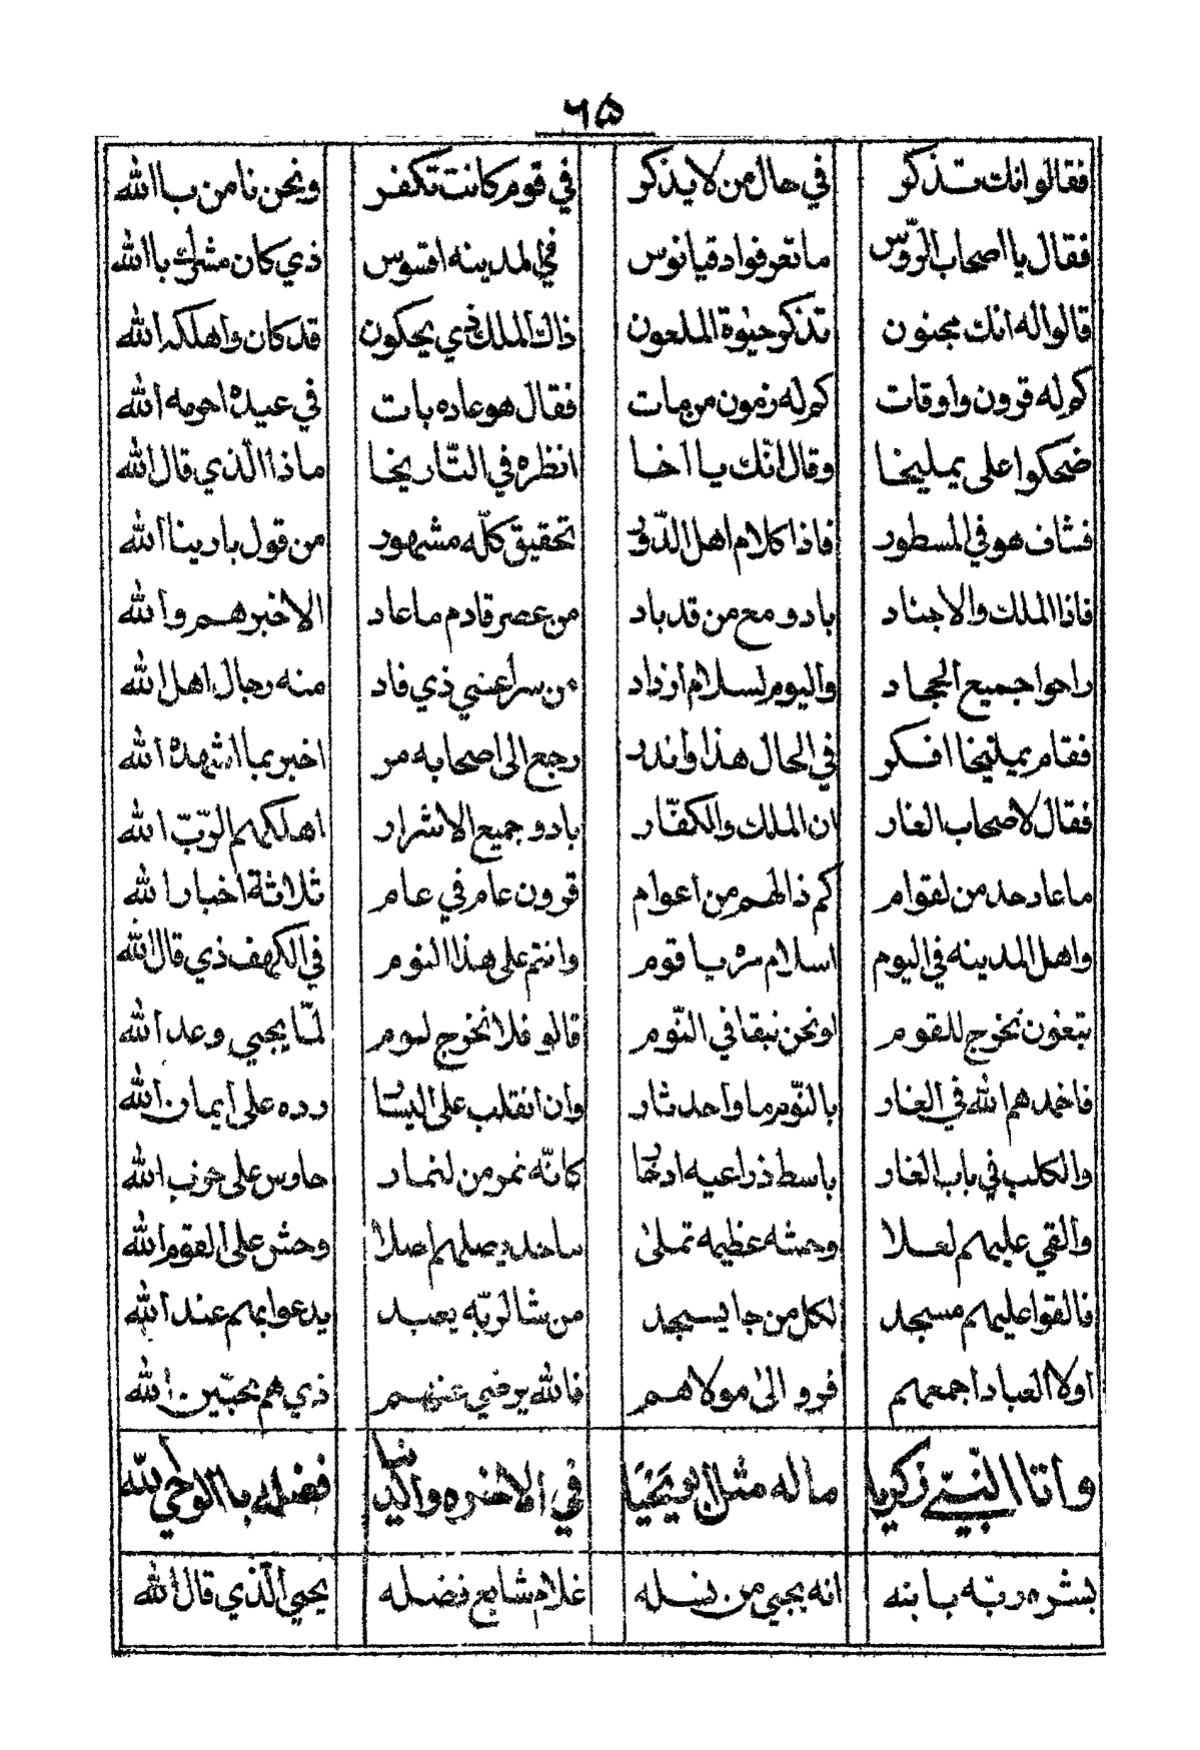 ٦٥
فقالوا انك تذكر في حال من لا يذكر في قوم كانت تكفر ونحن نامن با الله
فقال يا اصحاب الروّس ما تعرفوا دقيانوس في لمدينه افسوس ذي كان مشرك با الله
قالوا له انك مجنون تذكر حيوة الملعون ذاك الملك ذي يحكون قد كان واهلكه الله
كم له قرون واوقات كم له زمون من مات فقال هو عاده بات في عيده احرمه الله
ضحكوا على يمليخا وقال انّك يا اخا انظره في التّاريخا ماذا الّذي قال الله
فشاف هو في المسطور فاذا كلام اهل الدّور تحقيق كلّه مشهور من قول بارينا الله
فاذا الملك والاجناد بادو مع من قد باد من عصر قادم ما عاد الا خبرهم والله
راحوا جميع الججاد واليوم لسلام ازداد من سرا عنبي ذي فاد منه رجال اهل الله
فقام يمليخا افكر في الحال هذا واندر رجع الى اصحابه مر اخبر بما اشهده الله
فقال لاصحاب الغار ان الملك والكفّار بادو جميع الاشرار اهلكهم الرّبّ الله
ما عاد حد من لقوام كم ذا لهم من اعوام قرون عام في عام ثلاثة اخبار الله
واهل المدينه في اليوم اسلام مره يا قوم وانتم على هذا النوم في الكهف ذي قال الله
تبغون نخرج للقوم او نحن نبقا في النّوم قالو فلا نخرج ليوم لمّا يجيي وعد الله
فاخمدهم الله في الغار بالنّوم ما واحد ثار وان انقلب على اليسار رده على ايمان الله
والكلب في باب الغار باسط ذراعيه كانّه نمر من لنمار حاوس على حزب الله
والقي عليهم لعلا وحشه عظيمه تملىٰ ساحد يصلهم اصلا وحش على القوم الله
فالقوا عليهم مسجد لكل من جا يسجد من شا لربّه يعبد يدعوا بهم عند الله
اولا العباد اجمعهم فرو الىٰ مولاهم فالله يرضي عنهم ذي هم محبّين الله
واتا النبي زكريا ما له مثل ابو يحيا في الاخره والدنيا فضله با الوحي لله
بشره ربّه بابنه انه يجيي من نسله غلام شايع فضله يحيي الّذي قال الله